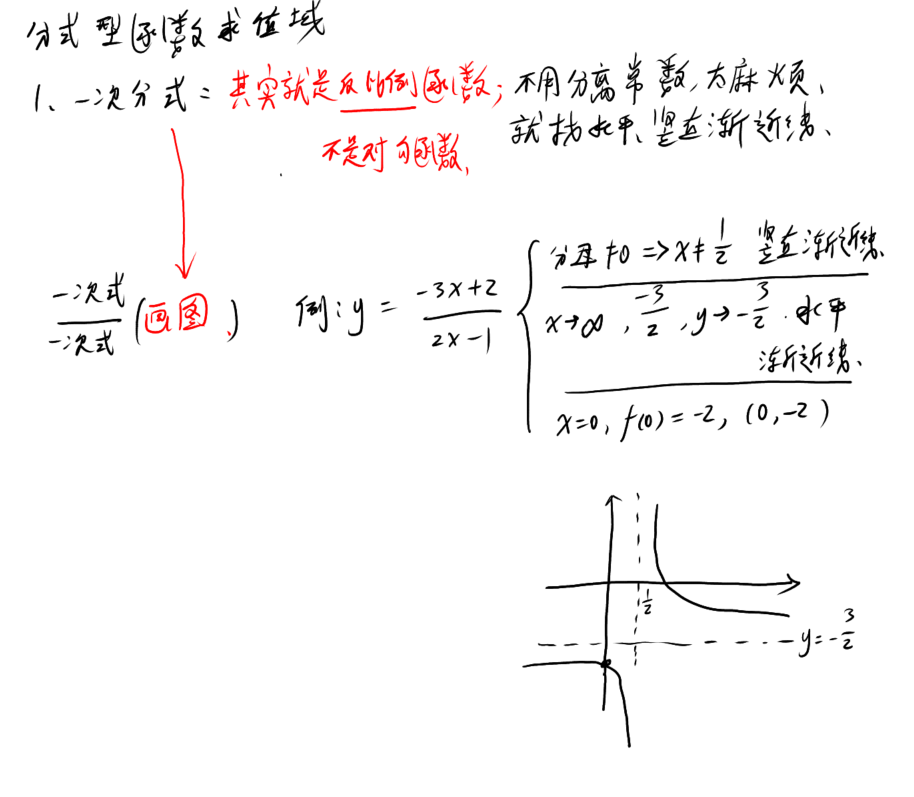 分式型函数求值域
1、一次分式：其实就是反比例函数；不用分离常数，太麻烦、
不是对勾函数、就找水平、竖直渐近线、
一次式/一次式(画图、) 例：y = (-3x+2)/(2x-1)
分母≠0 => x≠1/2 竖直渐近线
x→∞, -3/2, y→-3/2. 水平
渐近线、
x=0, f(0)=-2, (0,-2)
1/2
y=-3/2